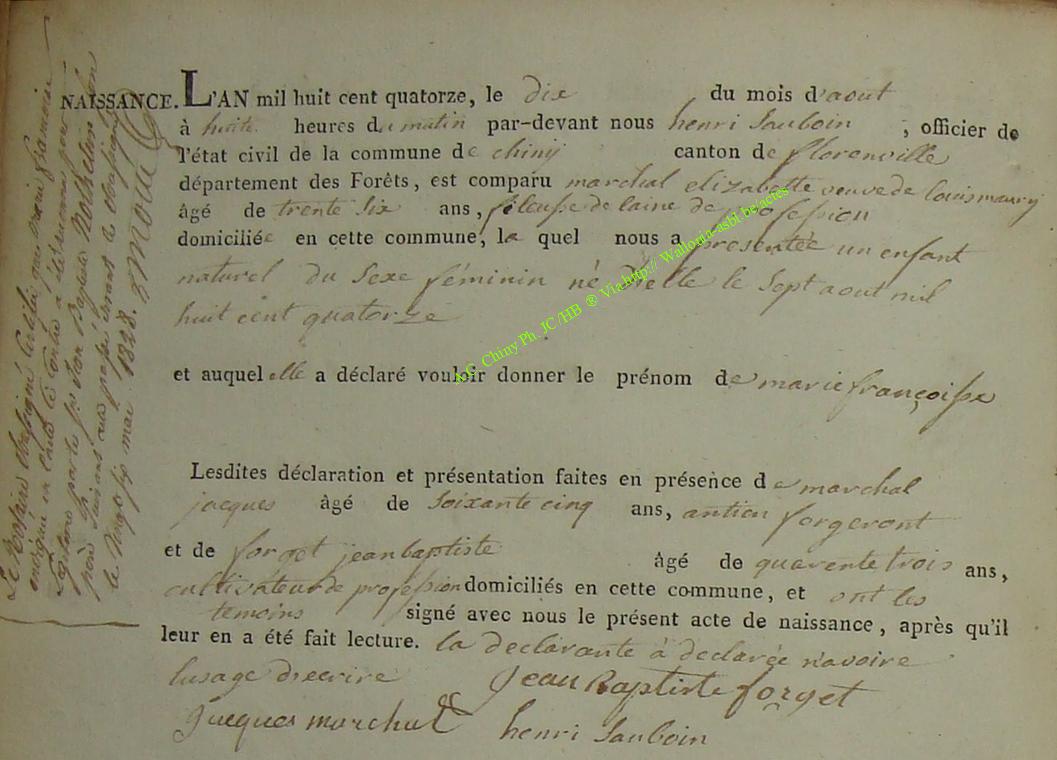 NAISSANCE. L'AN mil huit cent quatorze, le dix du mois d'aout
à huite heures du matin par-devant nous henri Sauboin , officier de
l'état civil de la commune de chinÿ canton de florenville
département des Forêts, est comparu marchal elizabette veuve de louis maury
âgé de trente Six ans, fileusse de laine de profession
domiciliée en cette commune, la quel nous a presentée un enfant
naturel du Sexe féminin né d'elle le Sept aout mil
huit cent quatorze
et auquel elle a déclaré vouloir donner le prénom de marie françoisse
Lesdites déclaration et présentation faites en présence de marchal
jacques âgé de Soixante cinq ans, antien forgeront
et de forget jean baptiste âgé de quarente trois ans,
cultivateur de profession domiciliés en cette commune, et ont les
temoins signé avec nous le présent acte de naissance, après qu'il
leur en a été fait lecture. la declarante à declarée n'avoire
lusage d'ecrire Jean Baptiste forget
Jacques marchal henri Sauboin
Le Notaire soussigné
le vingt six mai 1828.
A.G. Chiny Ph. JC/HB ® Via http:// Wallonia-asbl.be/actes